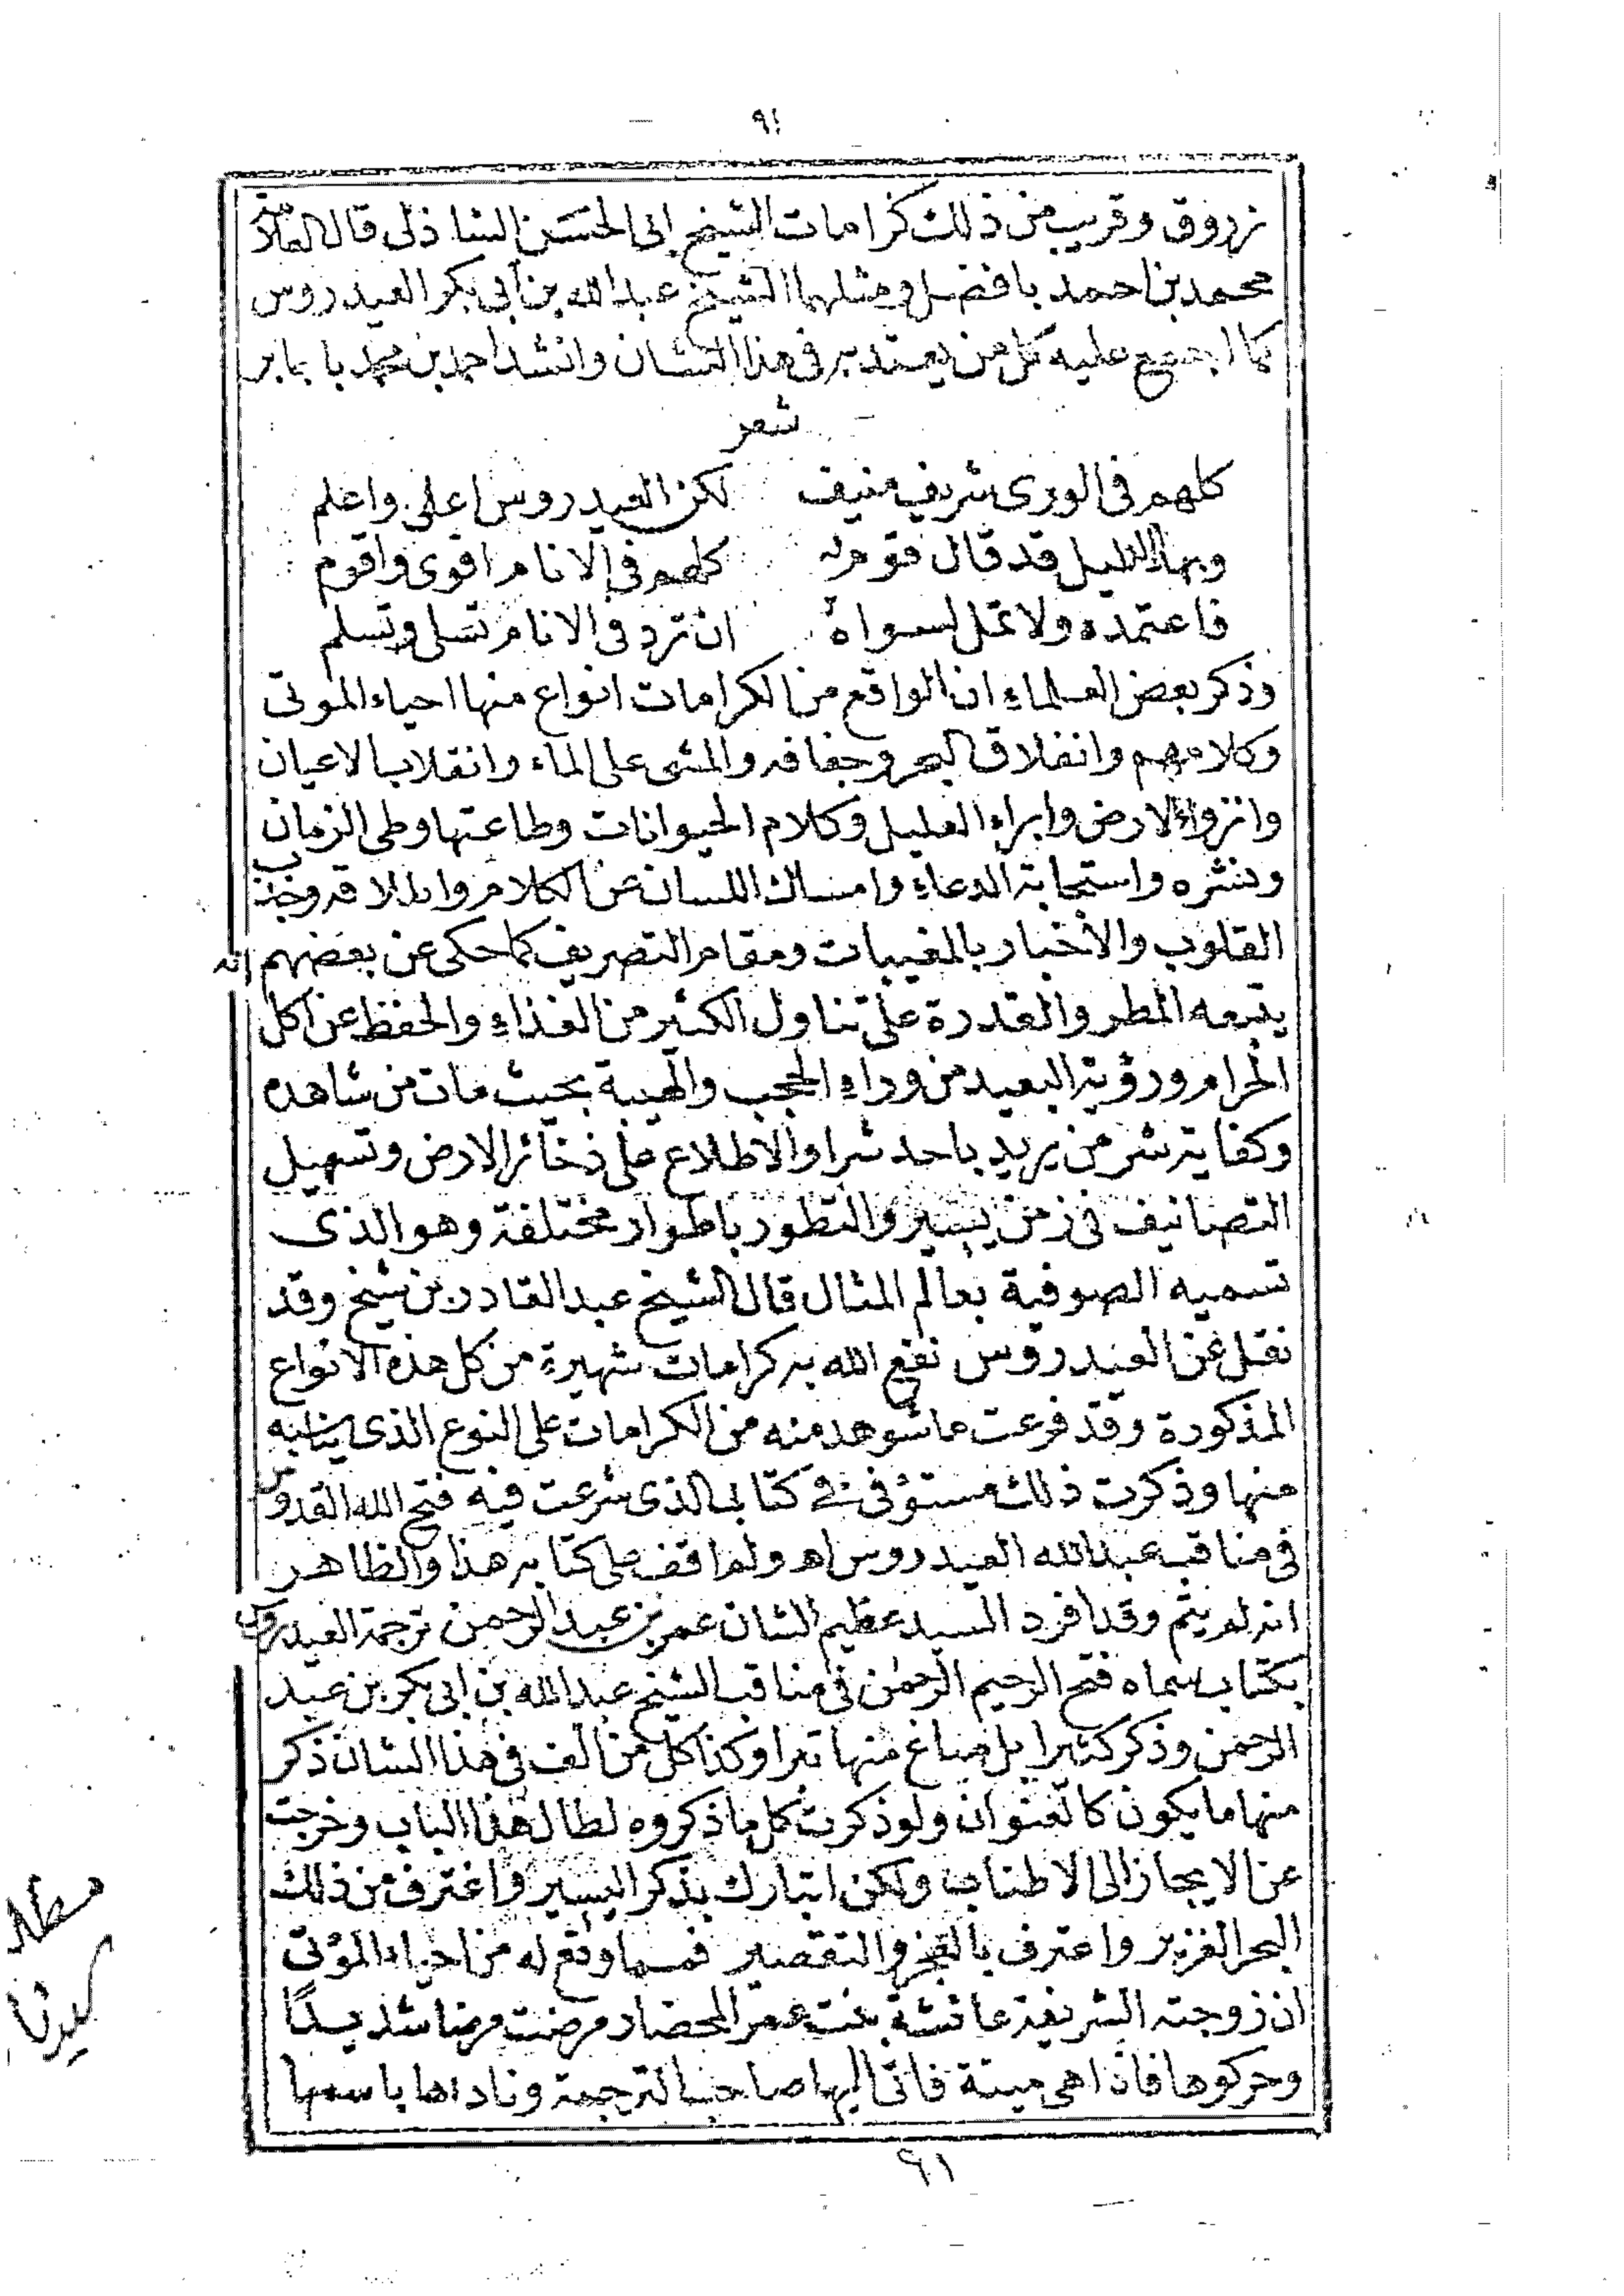 ٩١
زروق وقريب من ذلك كرامات الشيخ ابى الحسن الشاذلى قال العلامة
محمد بن احمد بافضل ومثلهما الشيخ عبدالله بن أبي بكر العيدروس
كما اجمع عليه كل من يعتد به فى هذا الشان وانشد احمد بن محمد با
شعر
كلهم فى الورى شريف منيف لكن العيدروس اعلى واعلم
وبهذا الدليل قد قال قوم كلهم فى الانام اقوى واقوم
فاعتمده ولا تمل لسواه ان ترد فى الانام تسلى وتسلم
وذكر بعض العلماء ان الواقع من الكرامات انواع منها احياء الموتى
وكلامهم وانفلاق البحر وجفافه والمشى على الماء وانقلاب الاعيان
وانزواء الارض وابراء العليل وكلام الحيوانات وطاعتها وطى الزمان
ونشره واستجابة الدعاء وامساك اللسان عن الكلام وانطلاقه وجذب
القلوب والأخبار بالمغيبات ومقام التصريف كما حكى عن بعضهم انه
يتبعه المطر والقدرة على تناول الكثير من الغذاء والحفظ عن اكل
الحرام ورؤية البعيد من وراء الحجب والهيبة بحيث مات من شاهده
وكفاية شر من يريد باحد شرا والاطلاع على ذخائر الارض وتسهيل
التصانيف فى زمن يسير والتطور باطوار مختلفة وهو الذى
تسميه الصوفية بعالم المثال قال الشيخ عبد القادر بن شيخ وقد
نقل عن العيدروس نفع الله به كرامات شهيرة من كل هذه الانواع
المذكورة وقد فرعت ما شوهد منه من الكرامات على النوع الذى يناسبه
منها وذكرت ذلك مستوفى فى كتابى الذى شرعت فيه فتح الله القدوس
فى مناقب عبدالله العيدروس اهـ ولم اقف على كتابه هذا والظاهر
انه لم يتم وقد افرد السيد عظيم الشان عمر بن عبد الرحمن ترجمة العيدروس
بكتاب سماه فتح الرحيم الرحمٰن فى مناقب الشيخ عبدالله بن ابى بكر بن عبد
الرحمن وذكر كثيرا منها وكذا كل من ألف فى هذا الشان ذكر
منها ما يكون كالعنوان ولو ذكرت كل ما ذكروه لطال هذا الباب وخرجت
عن الايجاز الى الاطناب ولكن اتبارك بذكر اليسير واغترف من ذلك
البحر الغزير واعترف بالعجز والتقصير فمما وقع له من احياء الموتى
ان زوجته الشريفة عائشة بنت عمر المحضار مرضت مرضا شديدًا
وحركوها فاذا هى ميتة فاتى اليها صاحب الترجمة وناداها باسمها
٩١